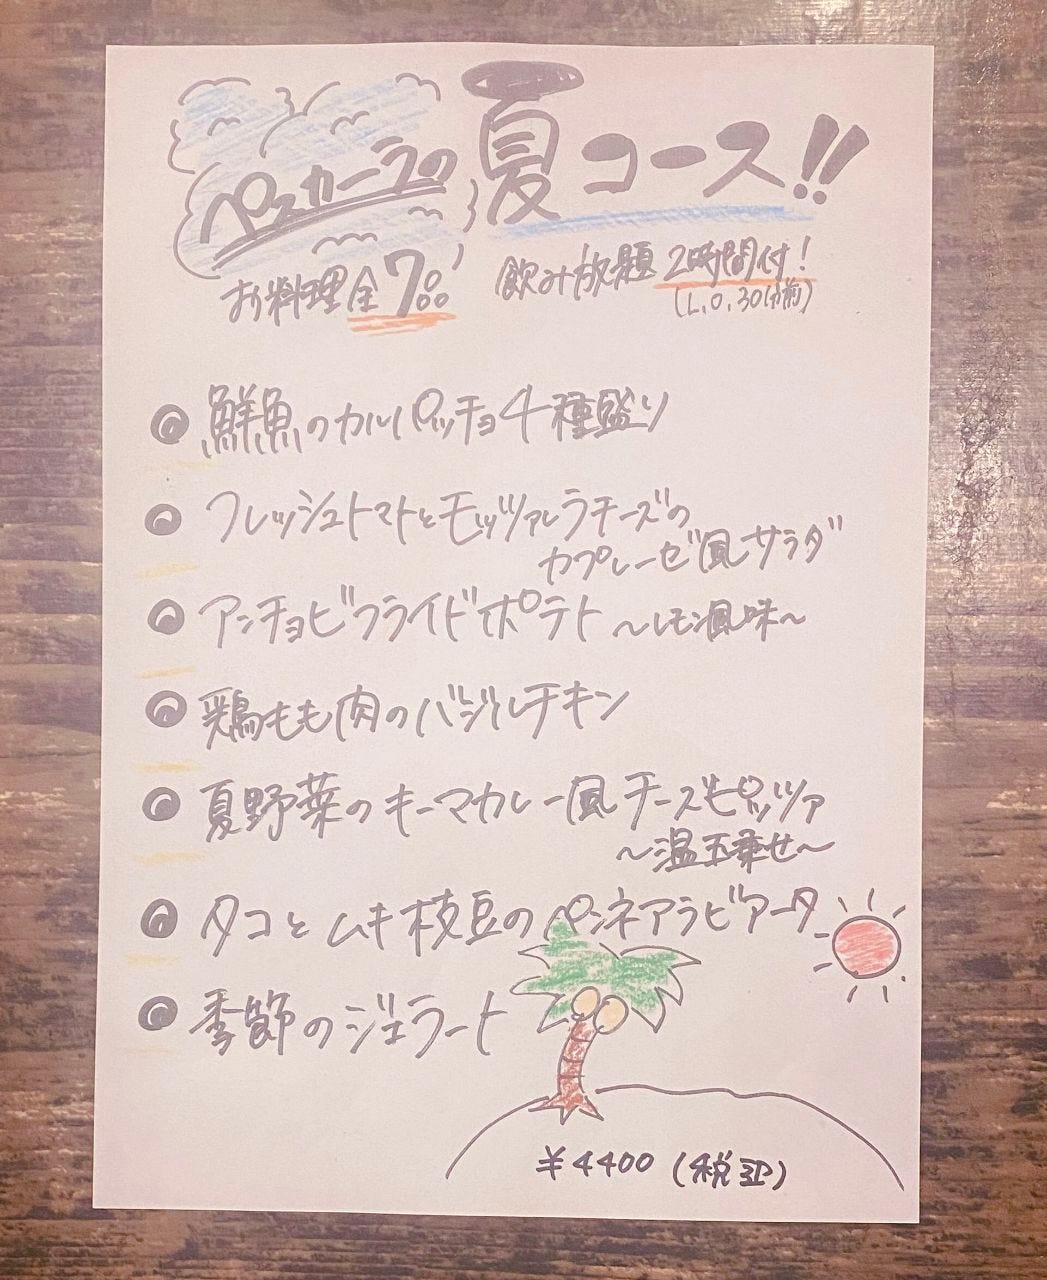 ペスカーラの夏コース!!
お料理全7品 飲み放題2時間付!
(L.O.30分前)
鮮魚のカルパッチョ4種盛り
フレッシュトマトとモッツァレラチーズの
カプレーゼ風サラダ
アンチョビフライドポテト~レモン風味~
鶏もも肉のバジルチキン
夏野菜のキーマカレー風チーズピッツァ
~温玉乗せ~
タコとムキ枝豆のペンネアラビアータ
季節のジェラート
¥4400(税込)